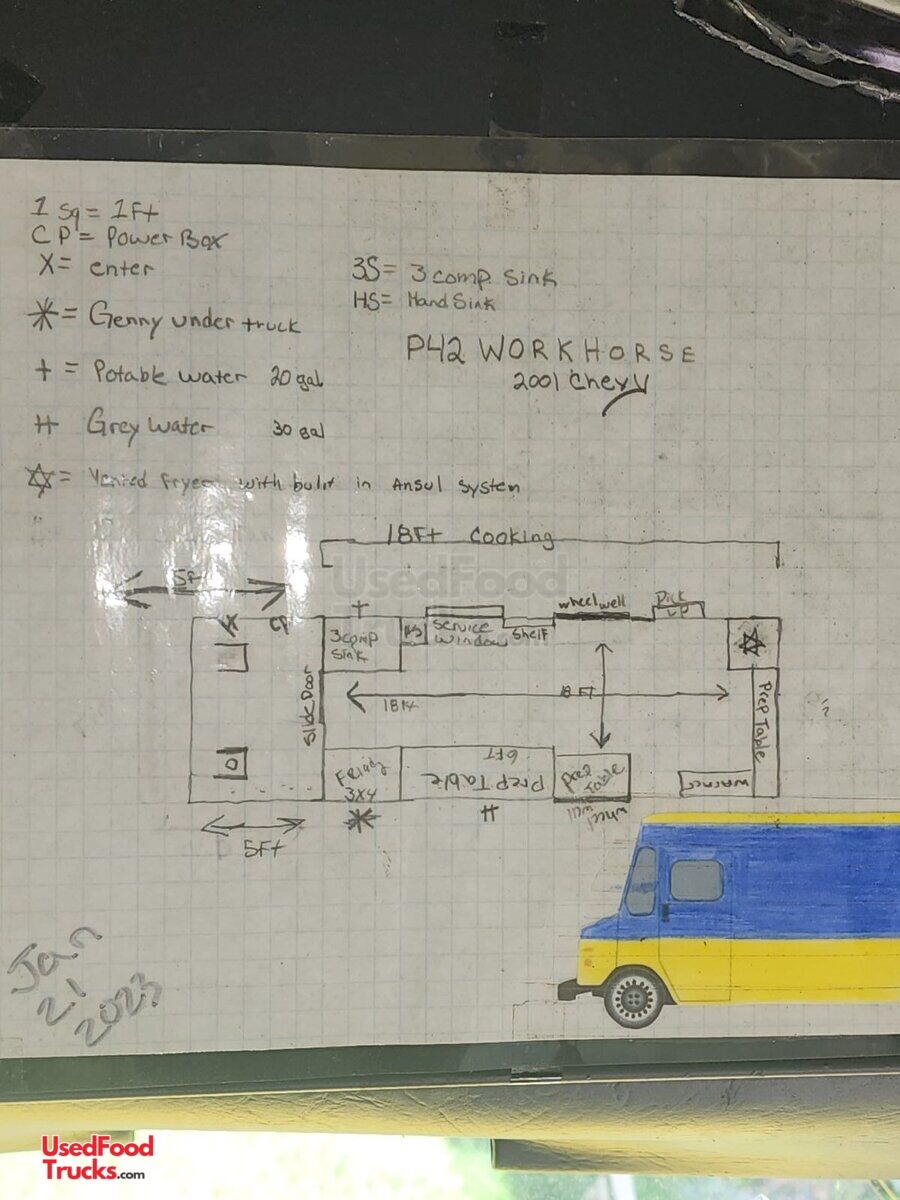 1 Sq = 1Ft
CP = Power Box
X = enter
3S = 3 comp. Sink
HS = Hand Sink
= Genny under truck
P42 WORKHORSE
2001 Chevy
+ = Potable water 20 gal
H Grey Water 30 gal
= Vented Fryer with built in Ansul System
18Ft Cooking
UsedFood
5F
X
CP
+
3comp Sink
HS
Service Window
Shelf
wheelwell
Pick UP
Slide Door
18Ft
8 FT
Prep Table
3X4
Prep Table 6FT
Prep Table
wheel well
warmer
H
5Ft
Jan 21 2023
UsedFood
Trucks.com